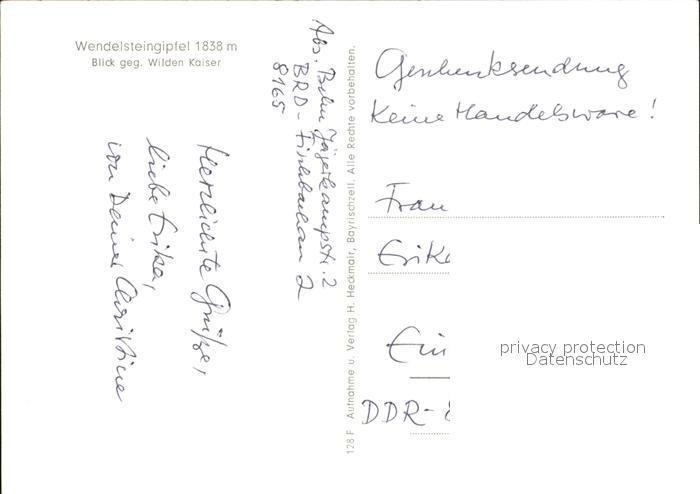 Wendelsteingipfel 1838 m
Blick geg. Wilden Kaiser
Herzlichste Grüße,
liebe Erika,
von Deiner Christine
Abs. Jägerkampstr. 2
BRD - Fischbachau 2
8165
128 F Aufnahme u. Verlag H. Heckmair, Bayrischzell. Alle Rechte vorbehalten.
Geschenksendung
Keine Handelsware!
Frau
Erik
Ein
DDR-
privacy protection
Datenschutz